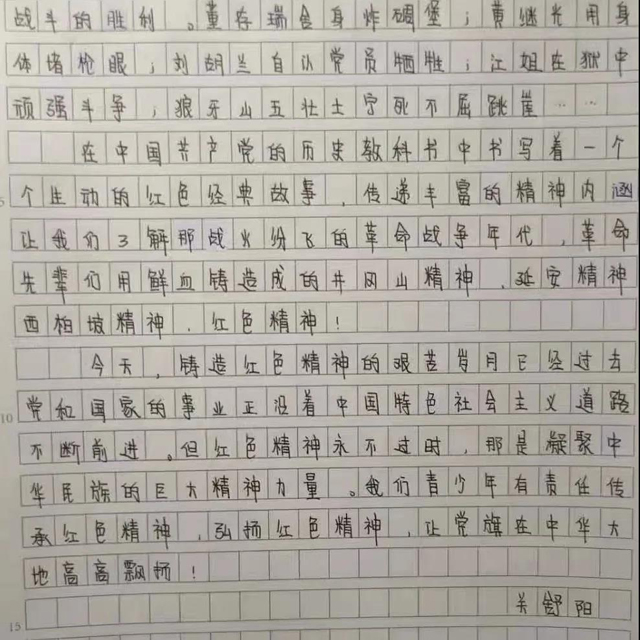 战斗的胜利。董存瑞舍身炸碉堡；黄继光用身
体堵枪眼；刘胡兰自认党员牺牲；江姐在狱中
顽强斗争；狼牙山五壮士宁死不屈跳崖……
在中国共产党的历史教科书中书写着一个
个生动的红色经典故事，传递丰富的精神内涵
让我们了解那战火纷飞的革命战争年代，革命
先辈们用鲜血铸造成的井冈山精神、延安精神
西柏坡精神、红色精神！
今天，铸造红色精神的艰苦岁月已经过去
党和国家的事业正沿着中国特色社会主义道路
10
不断前进。但红色精神永不过时，那是凝聚中
华民族的巨大精神力量。我们青少年有责任传
承红色精神，弘扬红色精神，让党旗在中华大
地高高飘扬！
15
关舒阳